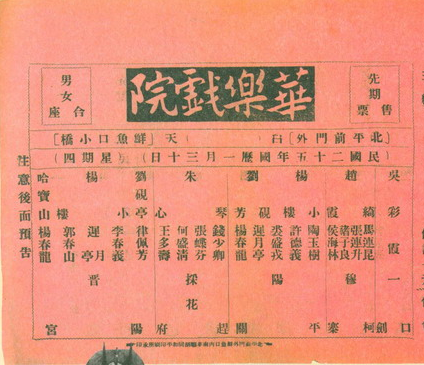 華樂戲院
先期售票
男女合座
[北平前門外]白天[鮮魚口小橋]
民國二十五年國曆一月三十日 星期四
吳彩霞 一口劍
趙綺霞 馬連昆 張連升 侯海林 穆柯寨
楊小樓 劉硯芳 陶玉樹 許德義 裘盛戎 遲月亭 楊春龍 陽平關
朱琴心 錢少卿 張蝶芬 何盛清 王多壽 採花趕府
劉硯亭 楊小樓 哈寶山 律佩芳 李春義 遲月亭 郭春山 楊春龍 晉陽宮
注意後面預告